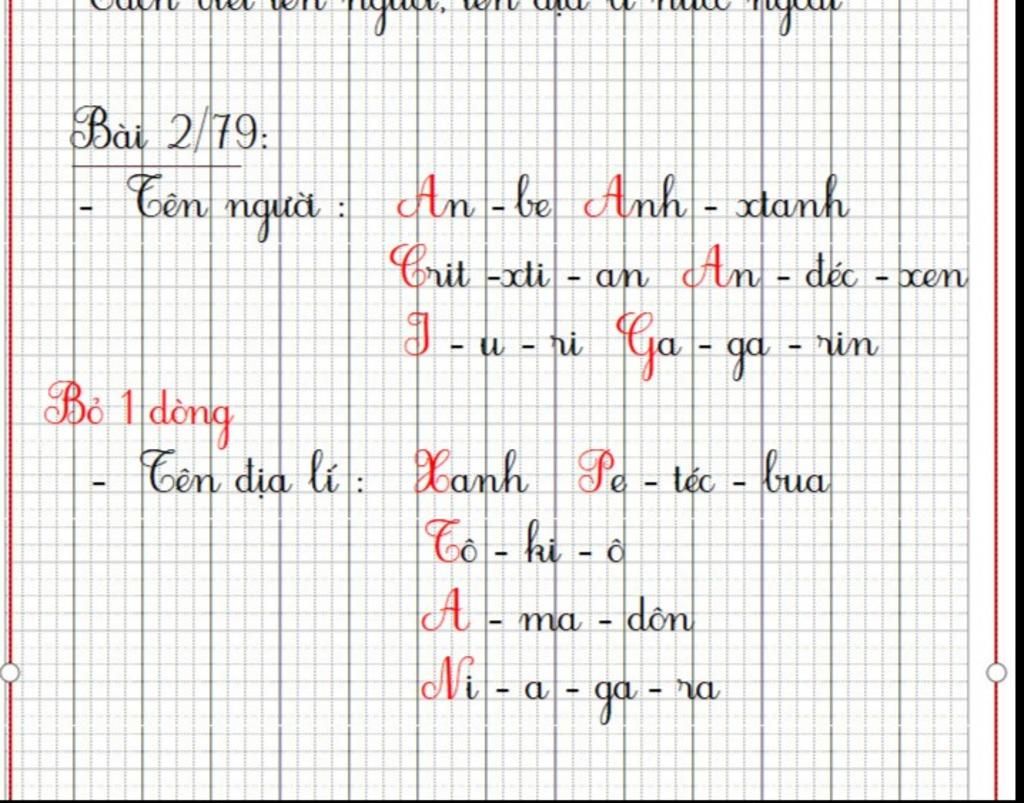 Cách viết tên người, tên địa lí nước ngoài
Bài 2/79:
- Tên người : An - be Anh - xtanh
Crit -xti - an An - đéc - xen
I - u - ri Ga - ga - rin
Bỏ 1 dòng
- Tên địa lí : Xanh Pe - téc - bua
Tô - ki - ô
A - ma - dôn
Ni - a - ga - ra